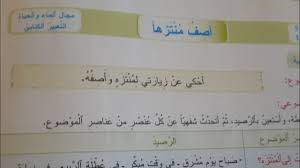 مجال الماء والحياة
التعبير الكتابي
أصف مُنْتَزَهاً
أَحْكي عَنْ زِيارَتي لِمُنْتَزَهٍ وَأَصِفُهُ.
وَأَسْتَعينُ بِالرَّصيدِ، ثُمَّ أَتَحَدَّثُ شَفَهِيّاً عَنْ كُلِّ عُنْصُرٍ مِنْ عَناصِرِ الْمَوْضوعِ.
الرصيد
الموضوع
صَباحَ يَوْمٍ مُشْرِقٍ، في وَقْتٍ مُبَكِّرٍ، في عُطْلَةِ